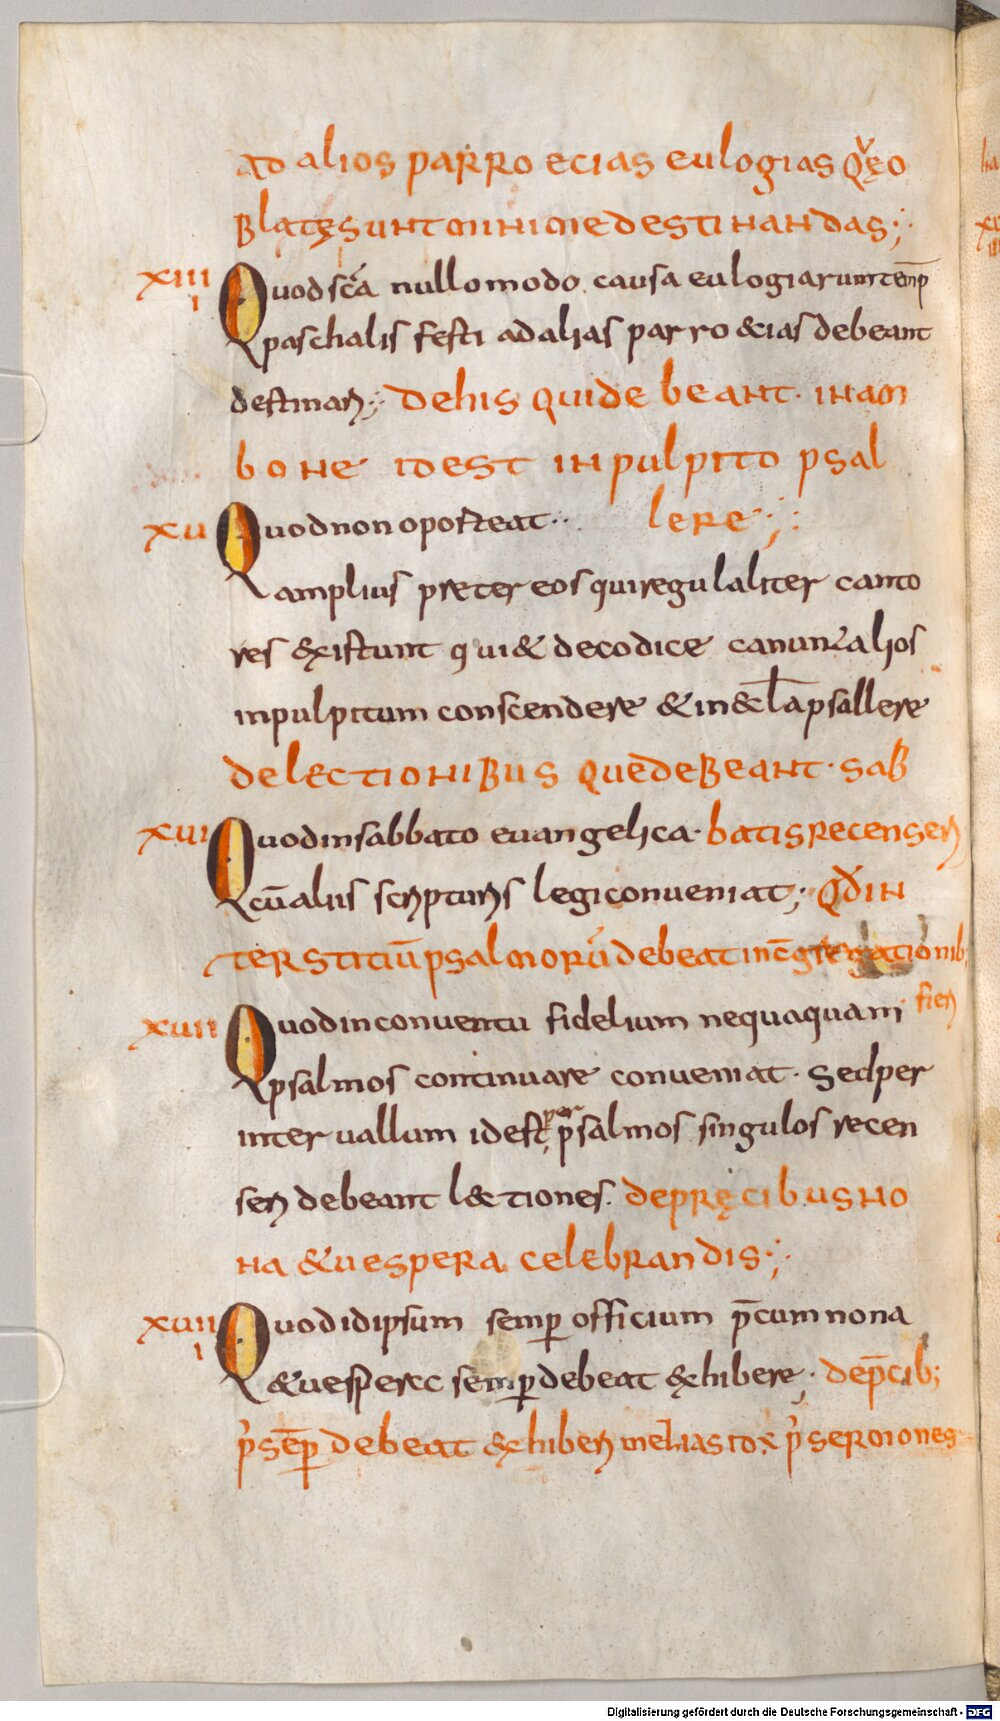 ad alios parroecias eulogias qͮęo
blatęsunt minime destinandas;
XIIII Quod scā nullomodo causa eulogiarum temp̄
paschalis festi ad alias parro&ias debeant
destinari; de his qui debeant in am
bone id est in pulpito psal
XV Quod non oporteat lere;
amplius preter eos qui regulaliter canto
res existunt qui & de codice canunt alios
in pulpitum conscendere & in &cl̄a psallere
de lectionibus que debeant sab
XVI Quod in sabbato euangelica batis recenseri
cū aliis scripturis legi conueniat; Qd̄ in
terstitiū psalmorū debeat in cōgregationib;
XVII Quod in conuentu fidelium nequaquam fieri
psalmos continuare conueniat. Sed per
interuallum id est per psalmos singulos recen
seri debeant l&tiones. de pręcibus no
na & uespera celebrandis;
XVIII Quod idipsum semp̄ officium p̄cum nona
& uespere semp̄ debeat exhibere; de p̄cib;
p sēp debeat exhiberi p sermones
Digitalisierung gefördert durch die Deutsche Forschungsgemeinschaft - DFG